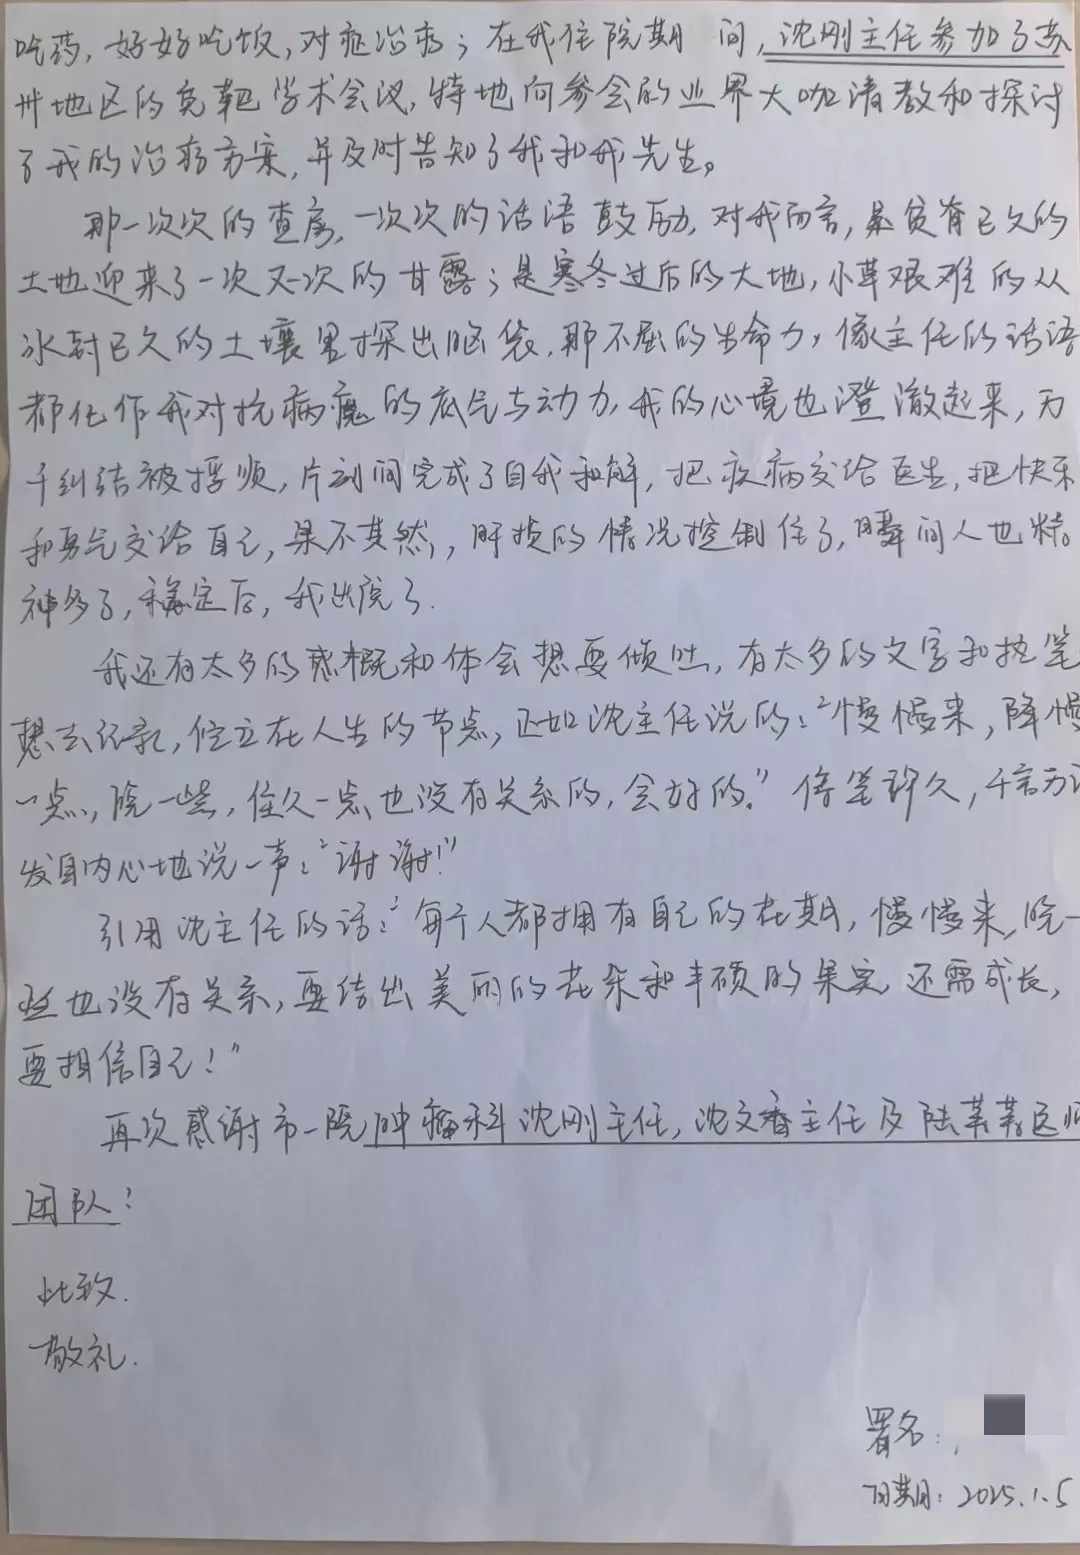 吃药，好好吃饭，对症治疗；在我住院期间，沈刚主任参加了苏
州地区的免靶学术会议，特地向参会的业界大咖请教和探讨
了我的治疗方案，并及时告知了我和我先生。
那一次次的查房，一次次的话语鼓励，对我而言，是贫瘠已久的
土地迎来了一次又一次的甘露；是寒冬过后的大地，小草艰难的从
冰封已久的土壤里探出脑袋，那不屈的生命力，像主任的话语
都化作我对抗病魔的底气与动力，我的心境也澄澈起来，万
千纠结被捋顺，片刻间完成了自我和解，把疾病交给医生，把快乐
和勇气交给自己，果不其然，肝损的情况控制住了，瞬间人也精
神多了，稳定后，我出院了.
我还有太多的感概和体会想要倾吐，有太多的文字和执笔
想去记录，伫立在人生的节点，还如沈主任说的：“慢慢来，降慢
一点，晚一些，住久一点也没有关系的，会好的.”停笔许久，千言万语
发自内心地说一声：“谢谢！”
引用沈主任的话：“每个人都拥有自己的花期，慢慢来，晚一
些也没有关系，要结出美丽的花朵和丰硕的果实，还需成长，
要相信自己！”
再次感谢市一院肿瘤科沈刚主任，沈文香主任及陆苇苇医师
团队！
此致.
敬礼.
署名：
日期：2025.1.5